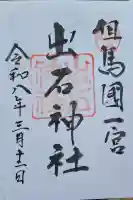 但馬國一宮
出石神社
令和八年三月十二日